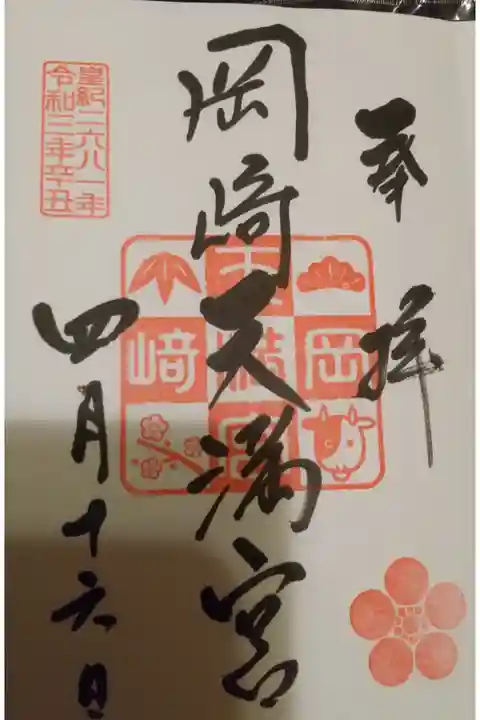 奉拝
岡﨑天満宮
岡
天満宮
﨑
皇紀二六八一年
令和三年辛丑
四月十六日